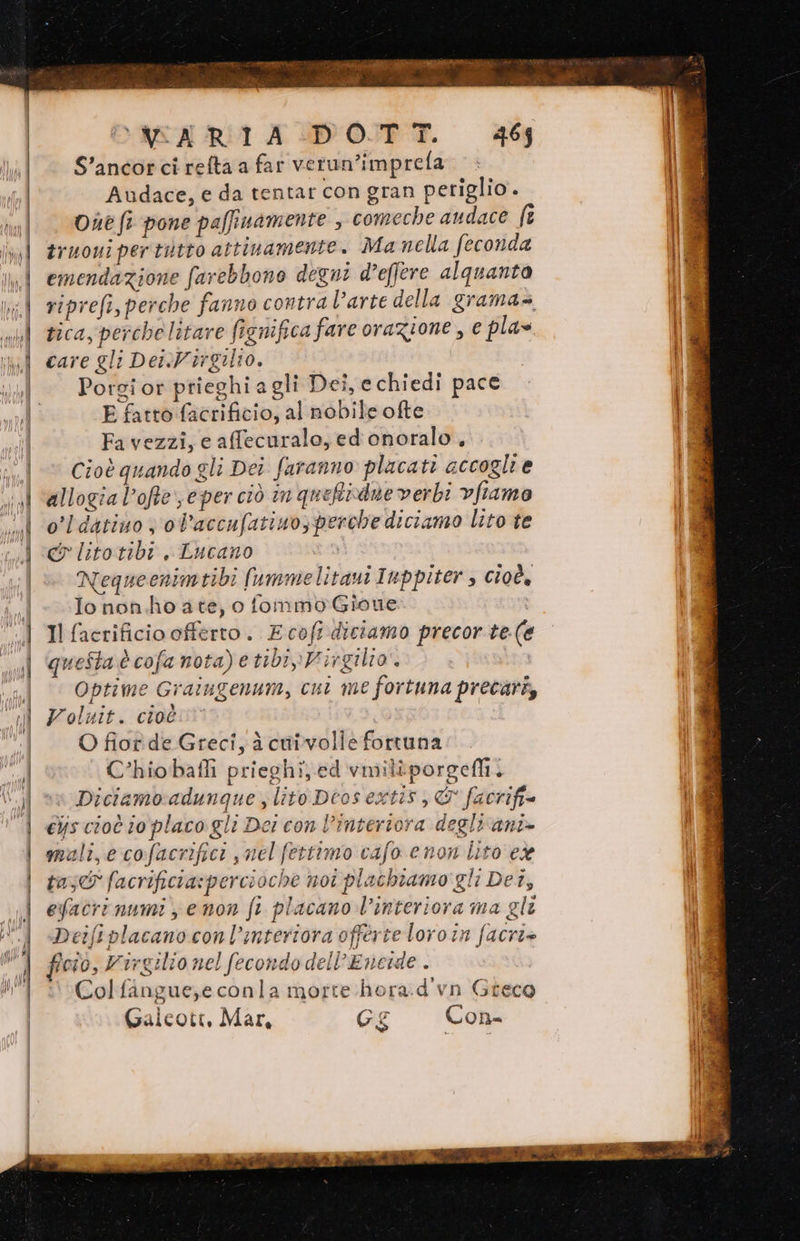 VARIA DOTT. 465
S'ancor ci resta a far verun'impresa :
Audace, e da tentar con gran periglio.
Oue si pone passiuamente, comeche audace si
truoui per tutto attiuamente. Ma nella seconda
emendazione sarebbono degni d'essere alquanto
ripresi, perche fanno contra l'arte della grama-
tica, perche litare significa fare orazione, e pla-
care gli Dei. Virgilio.
Porgi or prieghi a gli Dei, e chiedi pace
E fatto sacrificio, al nobile oste
Fa vezzi, e assecuralo, ed onoralo.
Cioè quando gli Dei saranno placati accoglie
allogia l'oste, e per ciò in questi due verbi vsiamo
o'l datiuo, o l'accusatiuo, perche diciamo lito te
& lito tibi. Lucano
Neque enim tibi summe litaui Iuppiter, cioè,
Io non ho a te, o sommo Gioue
Il sacrificio offerto. E cosi diciamo precor te (e
questa è cosa nota) e tibi, Virgilio.
Optime Graiugenum, cui me fortuna precari,
Voluit. cioè
O fior de Greci, à cui volle fortuna
C'hio bassi prieghi, ed vmili porgessi.
Diciamo adunque, lito Deos extis, & sacrifi-
cijs cioè io placo gli Dei con l'interiora degli ani-
mali, e co sacrifici, nel settimo caso e non lito ex
ta, & sacrificia: percioche noi plachiamo gli Dei,
e sacri numi, e non si placano l'interiora ma gli
Dei si placano con l'interiora offerte loro in sacri-
ficio, Virgilio nel secondo dell'Eneide.
Col sangue, e con la morte hora d'vn Greco
Galeott. Mar, Gg Con-